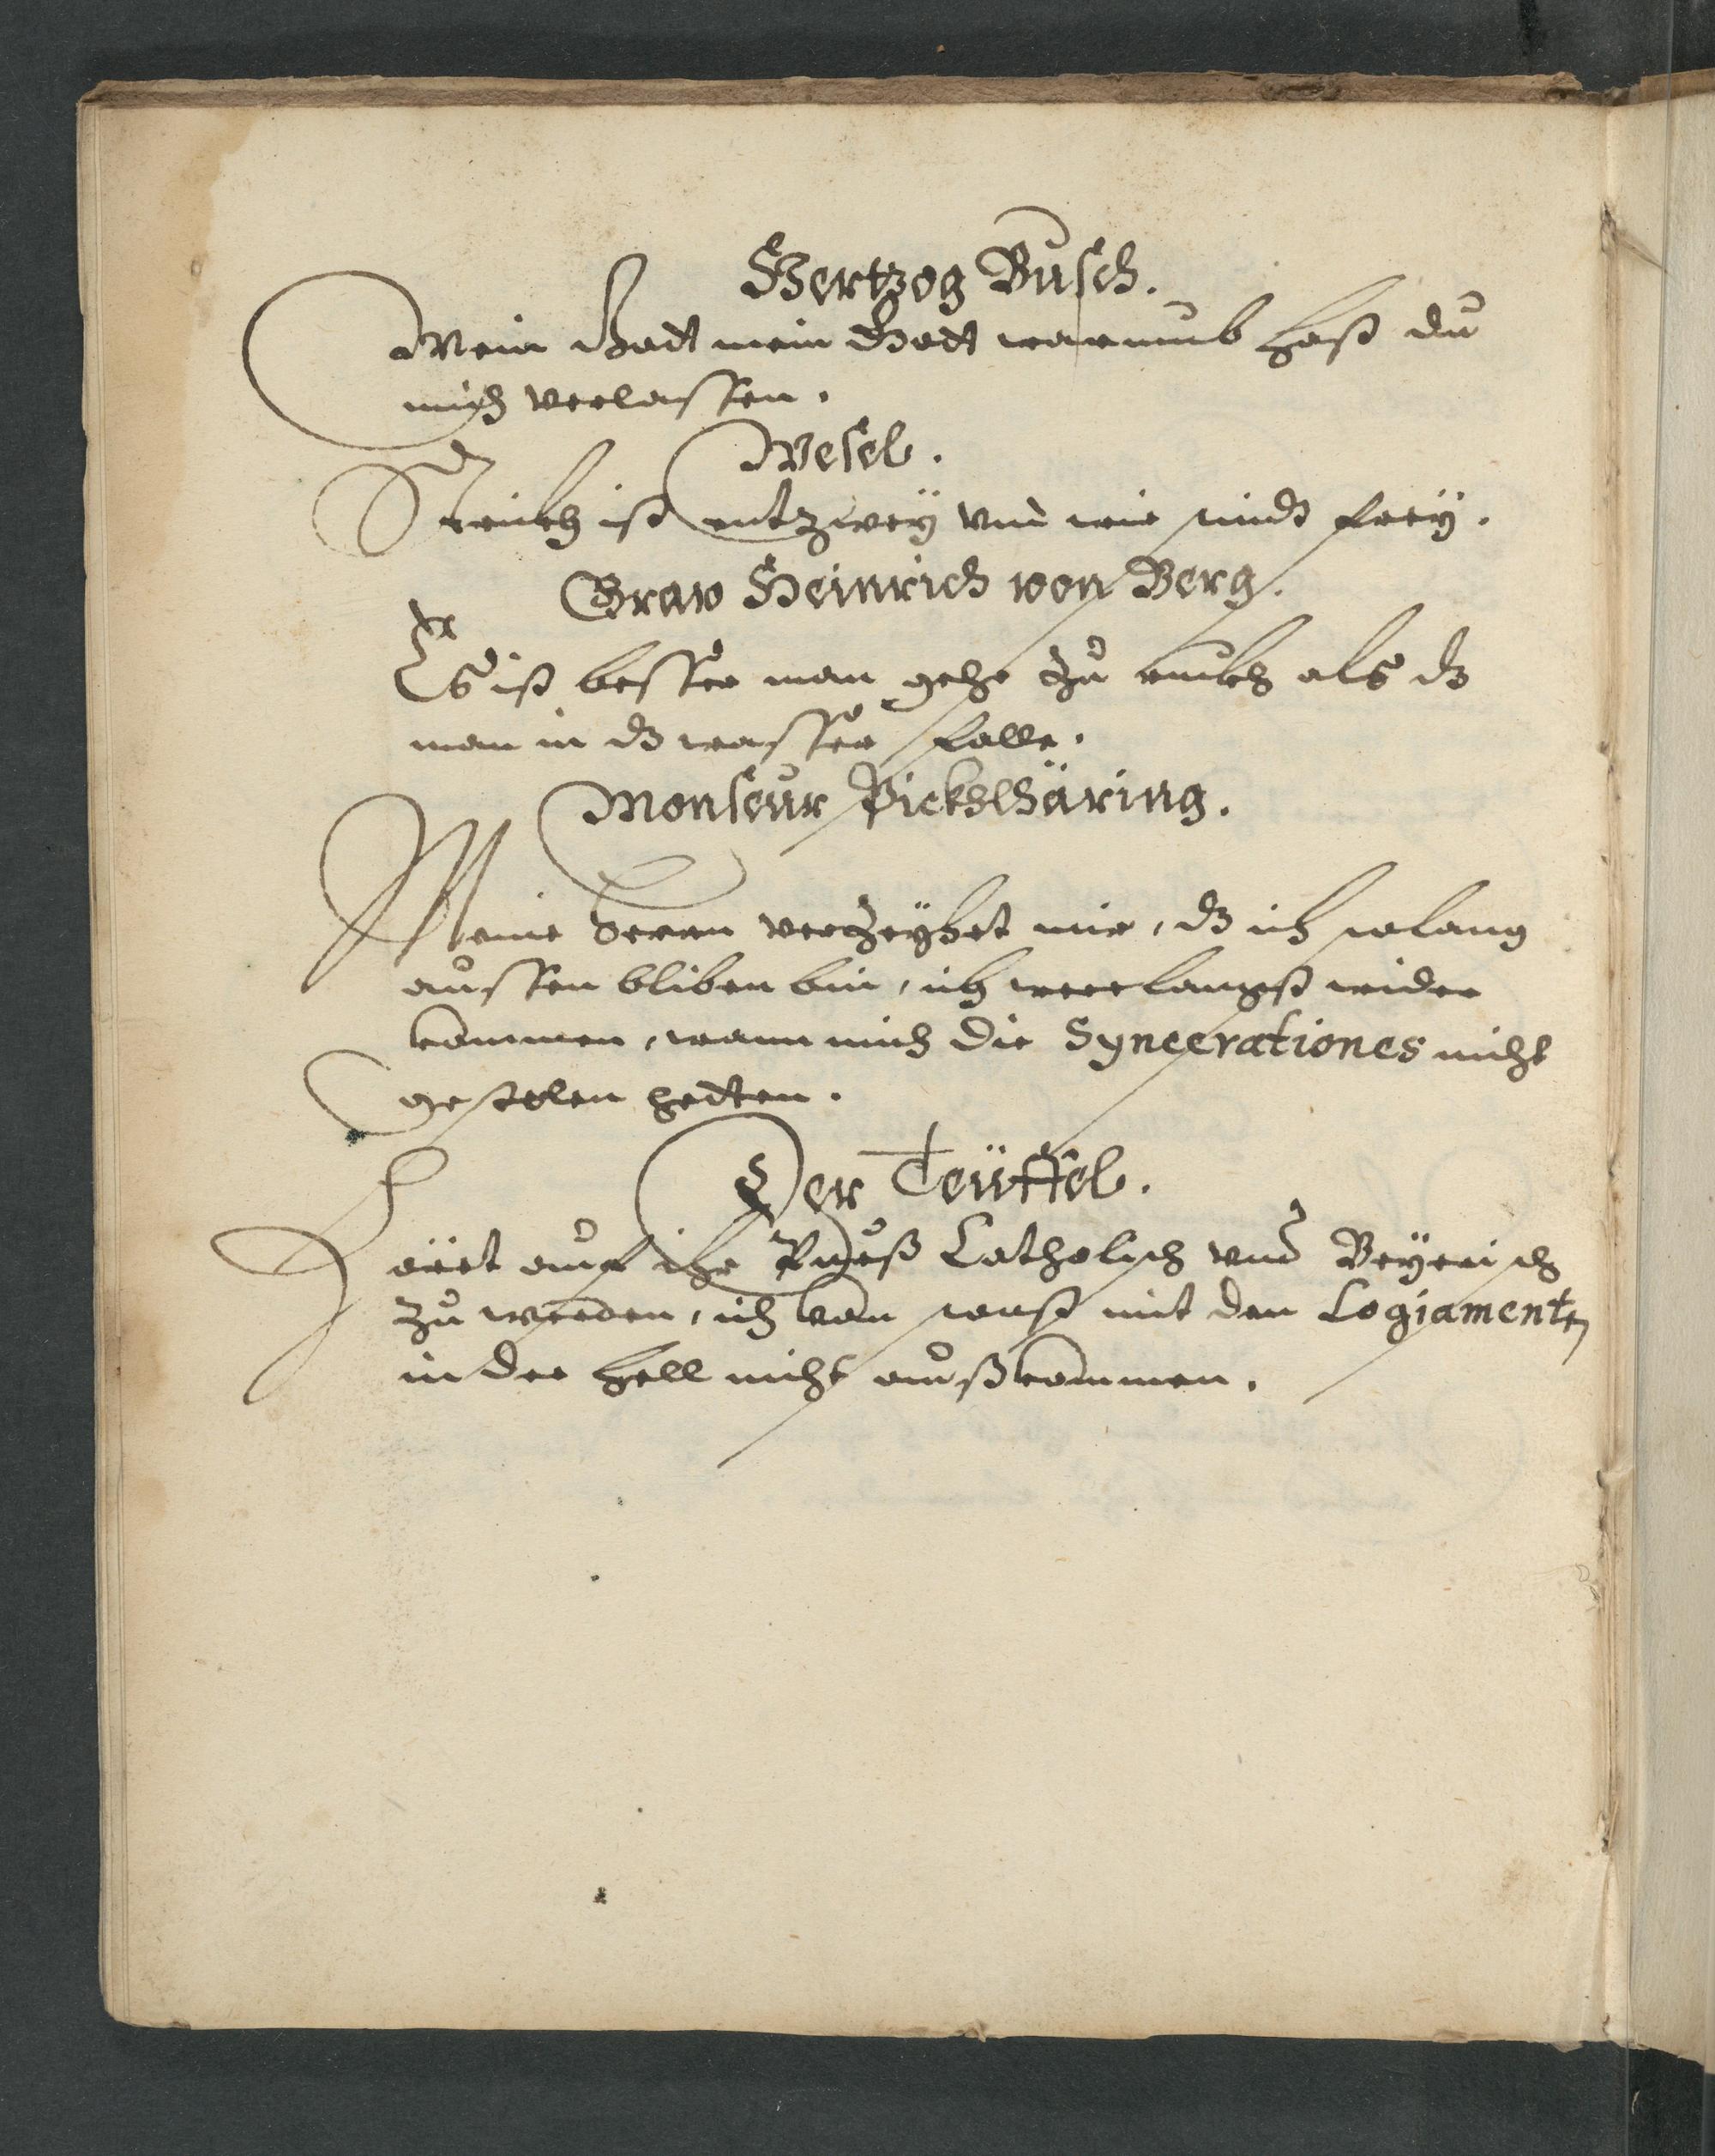 Hertzog Busch.
Mein Gott mein Gott warumb hast du
mich verlassen.
Wesel.
Strickh ist entzwey vnd wir sindt frey.
Graw Heinrich von Berg.
Es ist besser man gehe zu ruckh als dz
man in dz wasser falle.
Monseur Pickhlhäring.
Meine herrn verzeyhet mir, dz ich solang
aussen bliben bin, ich wer langst wider
kommen, wann mich die Syncerationes nicht
gestolen hetten.
Der Teüffel.
Höret auf ihr Catholisch vnd Beyerisch
zu werden, ich kan sonst mit den Logiamenten
in der hell nicht außkommen.